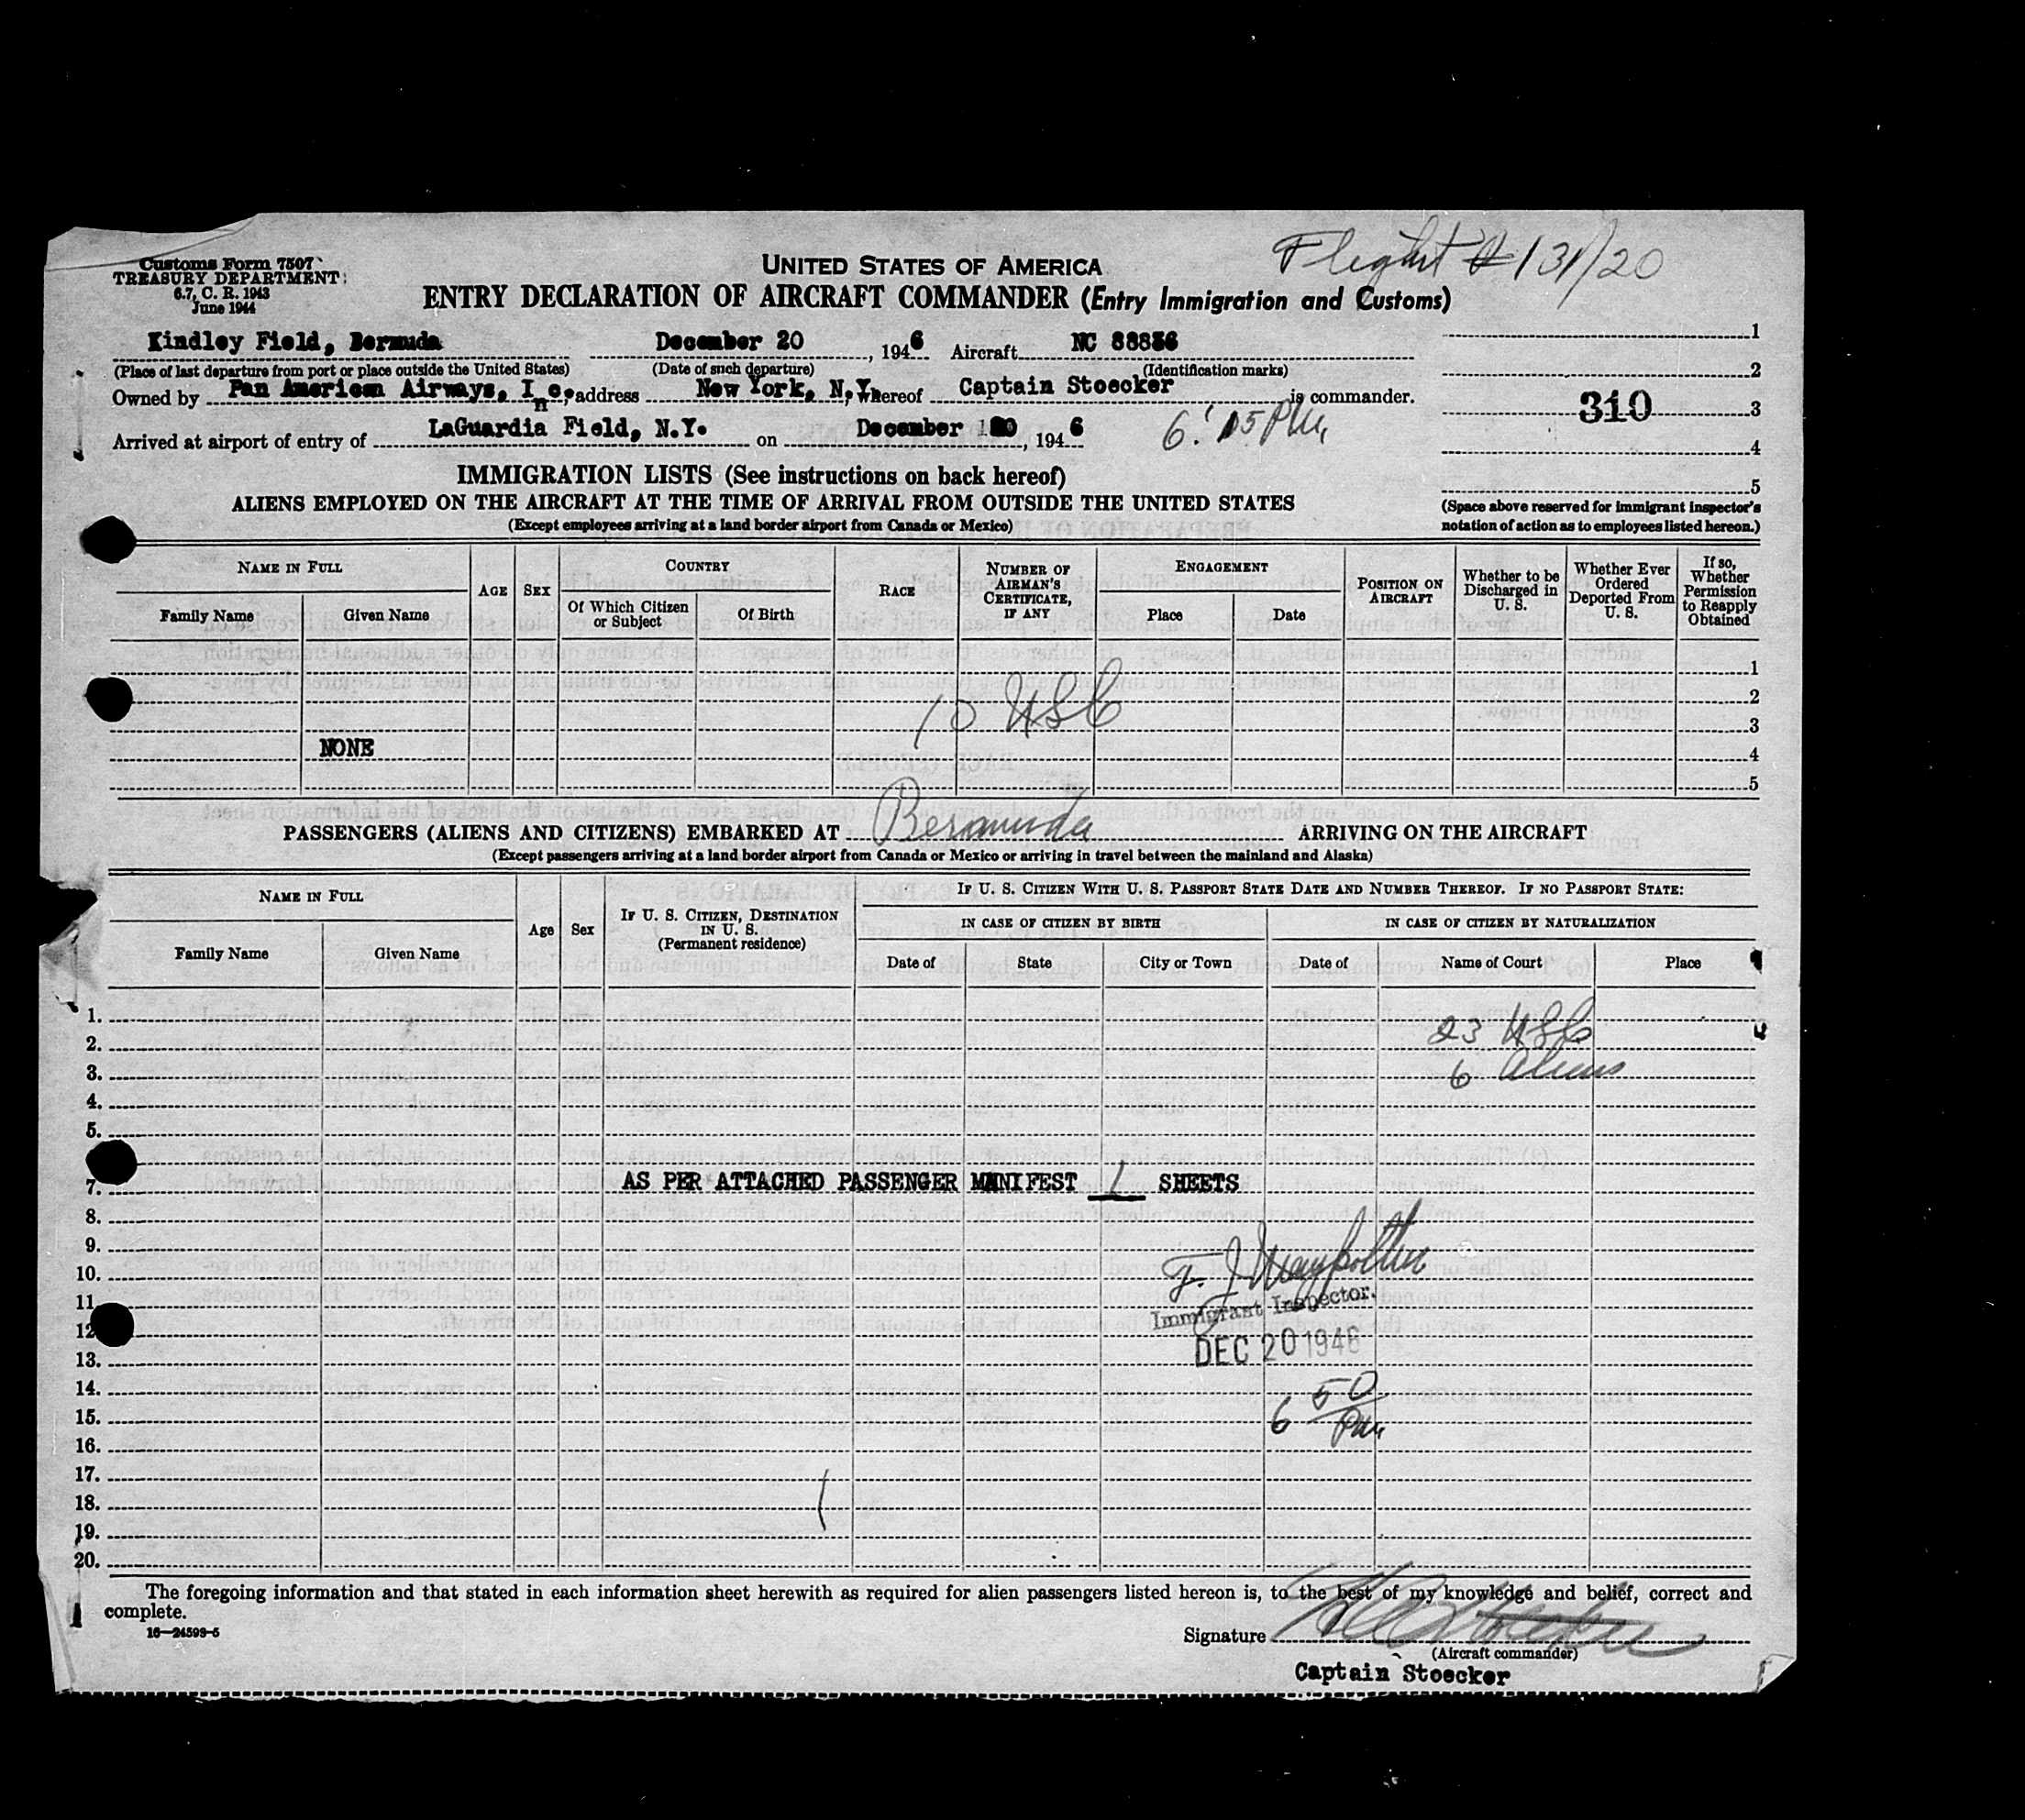 Flight # 131/20
Customs Form 7507
TREASURY DEPARTMENT
6.7, C. R. 1943
June 1944
UNITED STATES OF AMERICA
ENTRY DECLARATION OF AIRCRAFT COMMANDER (Entry Immigration and Customs)
Kindley Field, Bermuda December 20, 1946 Aircraft NC 88856 1
(Place of last departure from port or place outside the United States) (Date of such departure) (Identification marks) 2
Owned by Pan American Airways, Inc, address New York, N.Y. whereof Captain Stoecker is commander.
310 3
Arrived at airport of entry of LaGuardia Field, N.Y. on December 20, 1946 6:15 PM, 4
IMMIGRATION LISTS (See instructions on back hereof) 5
ALIENS EMPLOYED ON THE AIRCRAFT AT THE TIME OF ARRIVAL FROM OUTSIDE THE UNITED STATES
(Space above reserved for immigrant inspector's
(Except employees arriving at a land border airport from Canada or Mexico) notation of action as to employees listed hereon.)
NAME IN FULL
Family Name Given Name
AGE SEX
COUNTRY
Of Which Citizen or Subject Of Birth
RACE
NUMBER OF AIRMAN'S CERTIFICATE, IF ANY
ENGAGEMENT
Place Date
POSITION ON AIRCRAFT
Whether to be Discharged in U. S.
Whether Ever Ordered Deported From U. S.
If so, Whether Permission to Reapply Obtained
1
10 USC 2
3
NONE 4
5
PASSENGERS (ALIENS AND CITIZENS) EMBARKED AT Bermuda ARRIVING ON THE AIRCRAFT
(Except passengers arriving at a land border airport from Canada or Mexico or arriving in travel between the mainland and Alaska)
NAME IN FULL
Family Name Given Name
Age Sex
IF U. S. CITIZEN, DESTINATION IN U. S.
(Permanent residence)
IF U. S. CITIZEN WITH U. S. PASSPORT STATE DATE AND NUMBER THEREOF. IF NO PASSPORT STATE:
IN CASE OF CITIZEN BY BIRTH IN CASE OF CITIZEN BY NATURALIZATION
Date of State City or Town Date of Name of Court Place
1. 23 USC
2.
3. 6 Aliens
4.
5.
7. AS PER ATTACHED PASSENGER MANIFEST 1 SHEETS
8.
9.
10. F. J.
11. Immigrant Inspector.
12
13. DEC 20 1946
14.
15. 6 50 PM
16.
17.
18.
19.
20.
The foregoing information and that stated in each information sheet herewith as required for alien passengers listed hereon is, to the best of my knowledge and belief, correct and
complete.
16—24593-5
Signature
(Aircraft commander)
Captain Stoecker